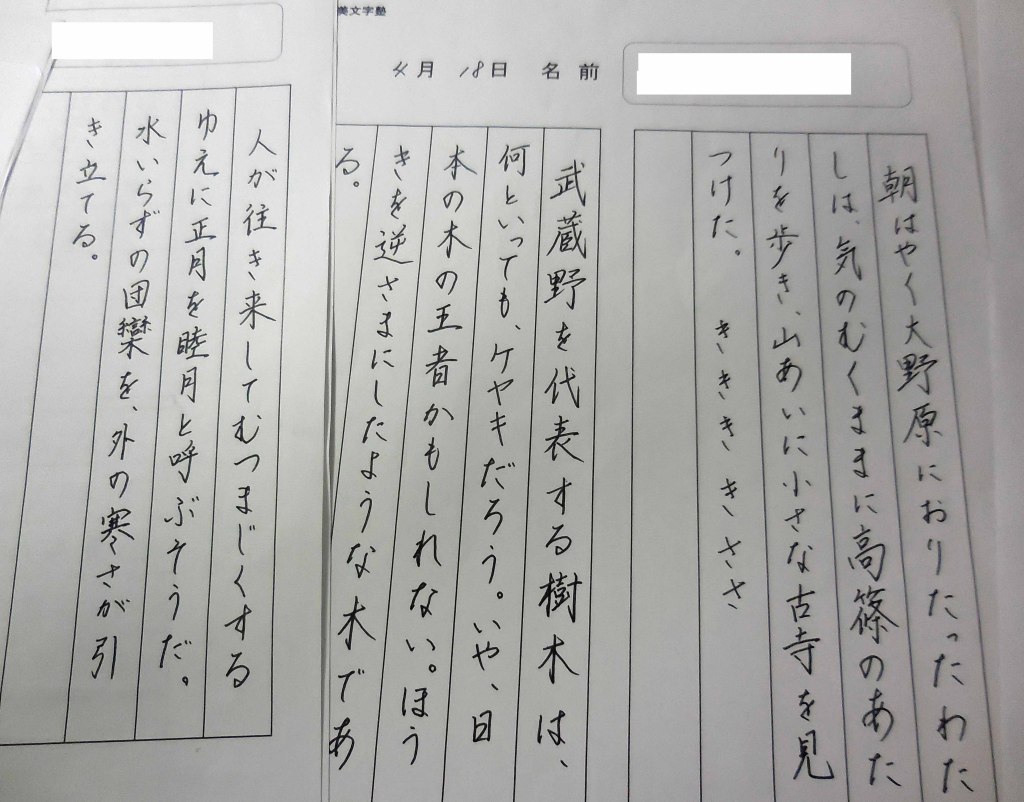 美文字塾
4月 18日 名前
朝はやく大野原におりたったわた
しは、気のむくままに高篠のあた
りを歩き、山あいに小さな古寺を見
つけた。 きききききささ
武蔵野を代表する樹木は、
何といっても、ケヤキだろう。いや、日
本の木の王者かもしれない。ほう
きを逆さまにしたような木であ
る。
人が往き来してむつまじくする
ゆえに正月を睦月と呼ぶそうだ。
水いらずの団欒を、外の寒さが引
き立てる。